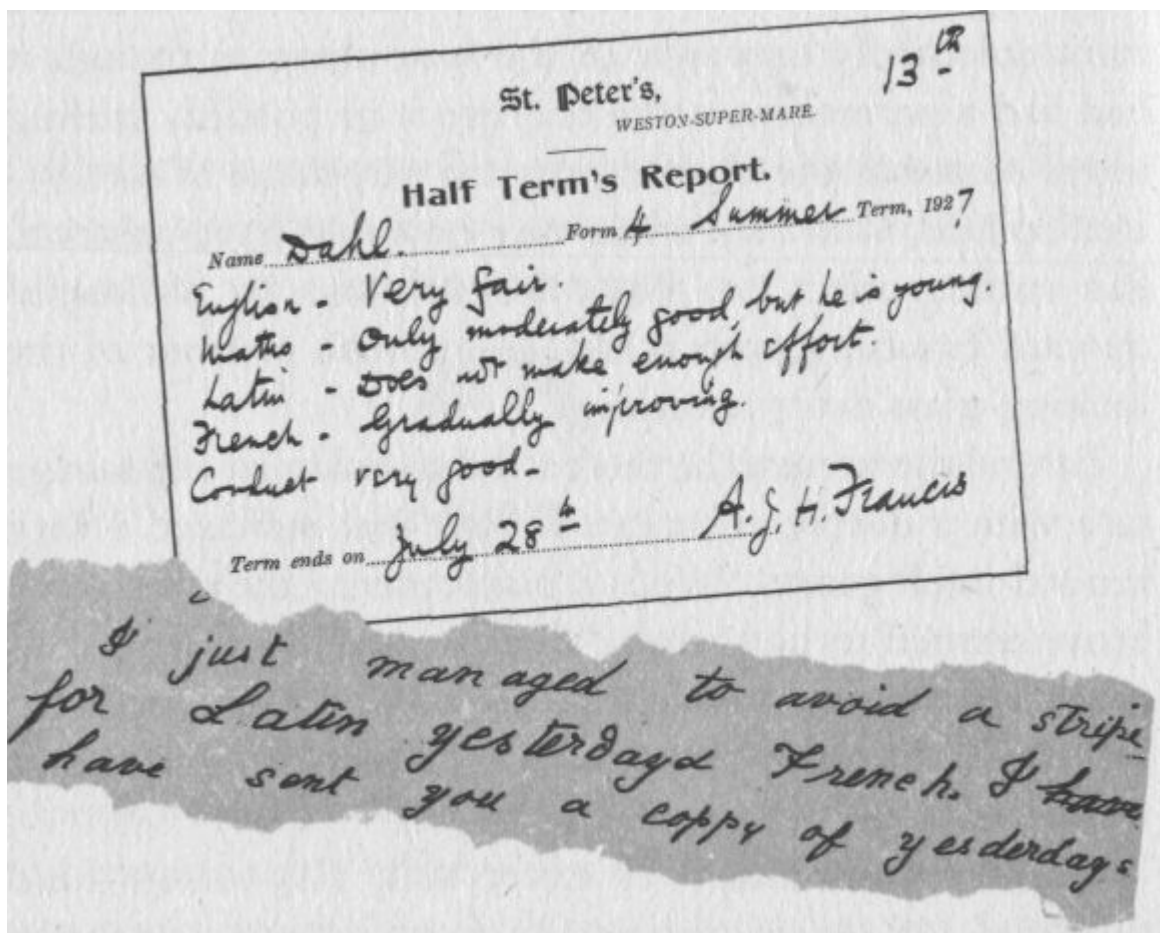 13th
St. Peter's,
WESTON-SUPER-MARE.
Half Term's Report.
Name Dahl. Form 4 Summer Term, 1927
English - Very fair
Maths - Only moderately good, but he is young.
Latin - Does not make enough effort.
French - Gradually improving.
Conduct very good.
Term ends on July 28th A. J. H. Francis
I just managed to avoid a stripe
for Latin yesterdayd French. I have
have sent you a coppy of yesderdays